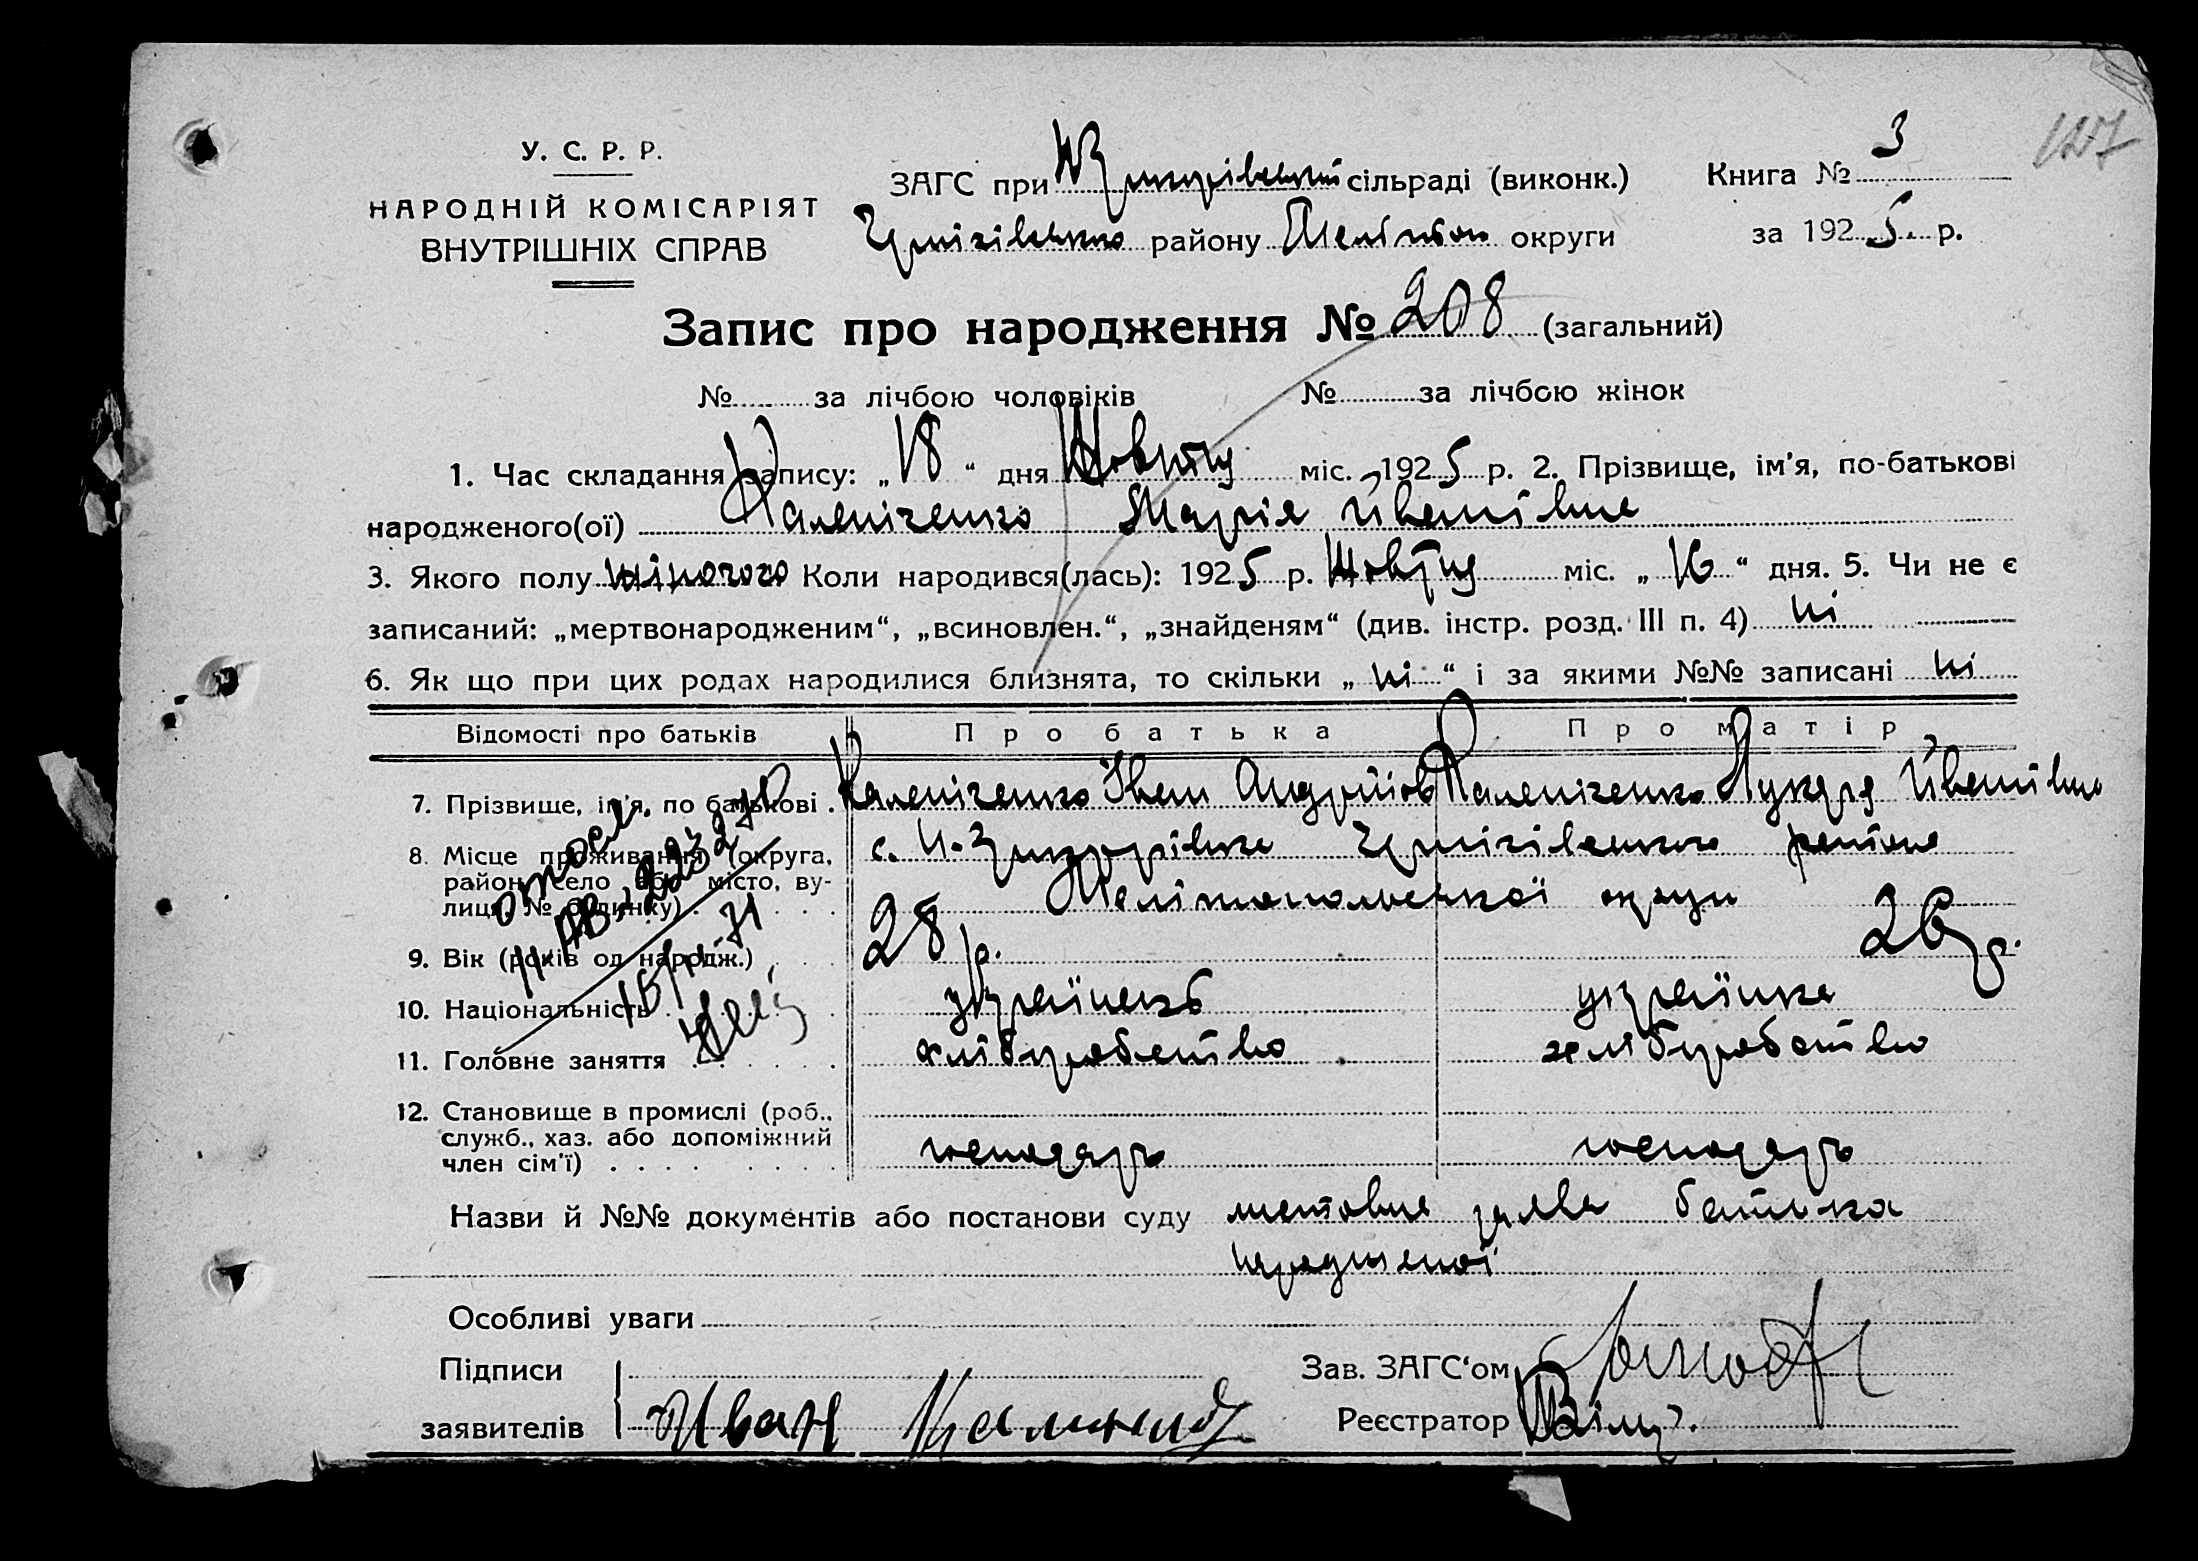 127
У. С. Р. Р.
НАРОДНІЙ КОМІСАРІЯТ
ВНУТРІШНІХ СПРАВ
ЗАГС при сільраді (виконк.)
Чернігівсько району Меліто́п округи
Книга № 3
за 1925 р.
Запис про народження № 208 (загальний)
№ за лічбою чоловіків № за лічбою жінок
1. Час складання запису: „18“ дня Жовтня міс. 1925 р. 2. Прізвище, ім'я, по-батькові
народженого(ої) Каленіченко Марія Йванівна
3. Якого полу жіночого Коли народився(лась): 1925 р. Жовтня міс. „16“ дня. 5. Чи не є
записаний: „мертвонародженим“, „всиновлен.“, „знайденям“ (див. інстр. розд. III п. 4) ні
6. Як що при цих родах народилися близнята, то скільки „ні“ і за якими №№ записані ні
Відомості про батьків Про батька Про матір
7. Прізвище, ім'я, по батькові . Каленіченко Іван Андрійов Каленіченко Лукеря Йванівна
8. Місце проживання (округа, район, село або місто, вулиця, № будинку) . с. Чернігівського района
Мелітопольської округи
9. Вік (років од народж.) 28 р. 26 р.
10. Національність . українець українка
11. Головне заняття . хліборобство хліборобство
12. Становище в промислі (роб., служб., хаз. або допоміжний член сім'ї) . господарь господарь
Назви й №№ документів або постанови суду заява батька
народженої
Особливі уваги
Підписи
заявителів Иван
Зав. ЗАГС‘ом
Реєстратор